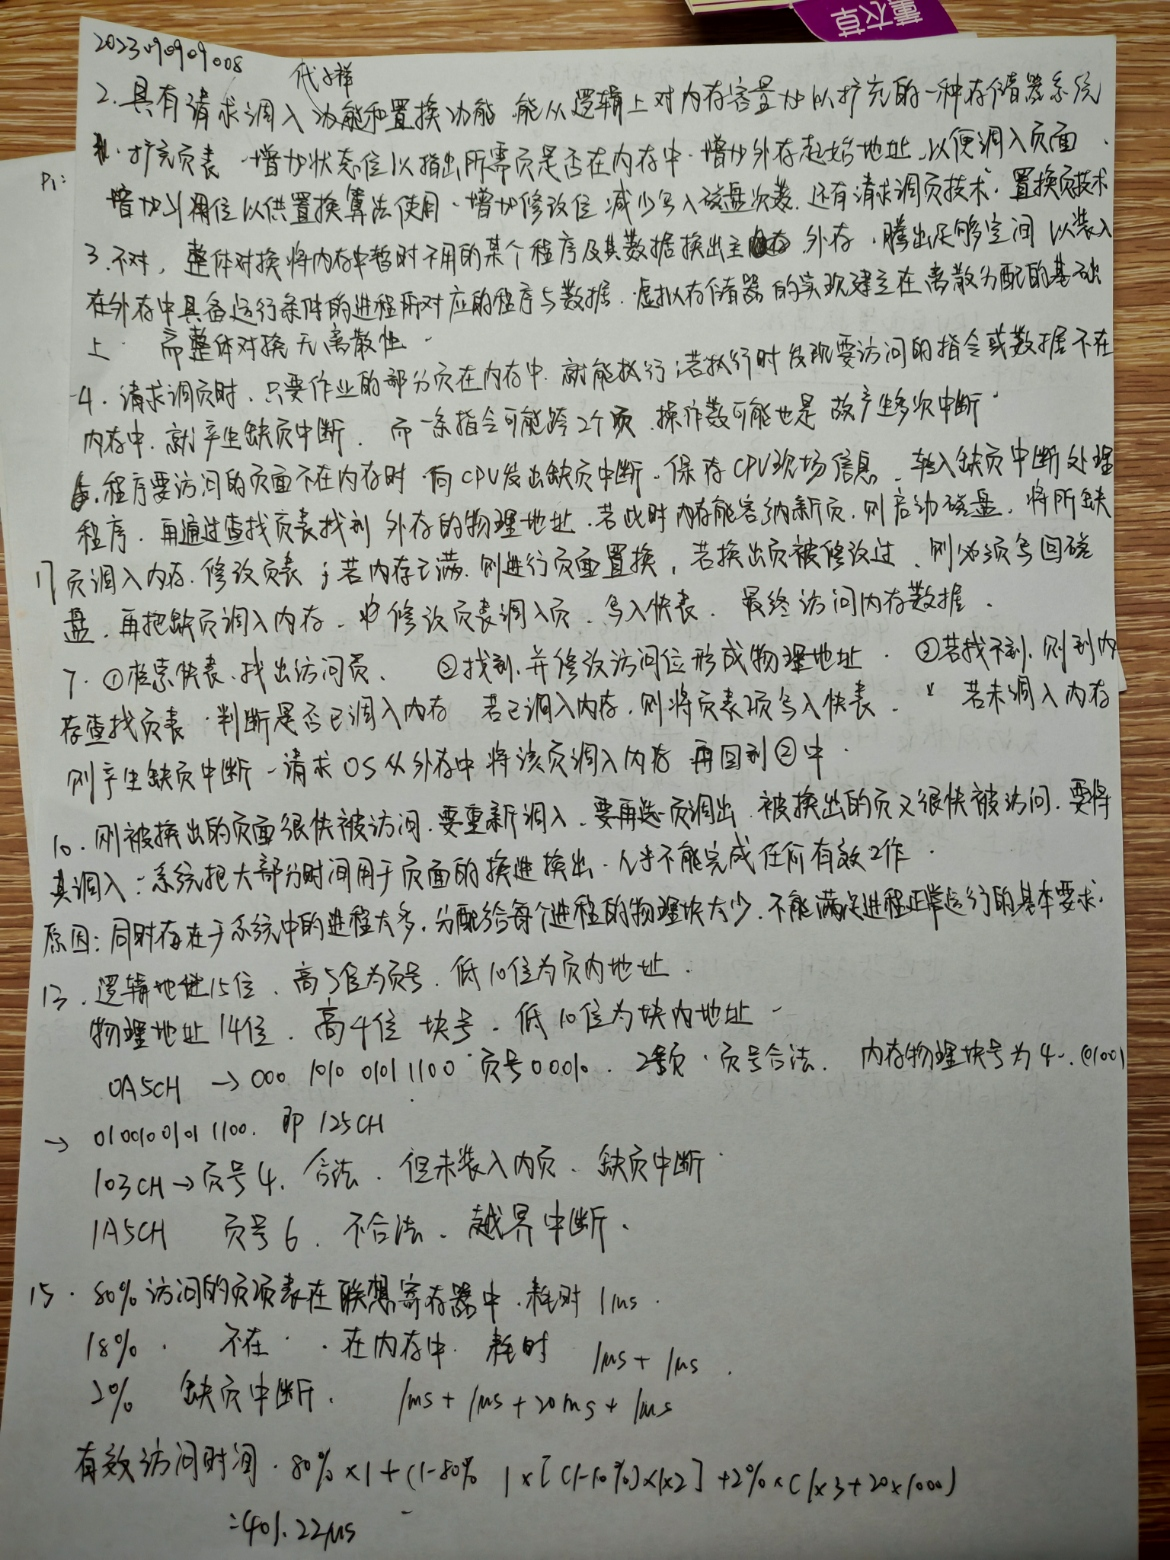 薰衣草
20230909008
代小祥
2.具有请求调入功能和置换功能 能从逻辑上对内存容量加以扩充的一种存储器系统
扩充页表 增加状态位以指出所需页是否在内存中.增加外存起始地址,以便调入页面.
P1:
增加引用位以供置换算法使用.增加修改位减少写入磁盘次数.还有请求调页技术.置换页技术
3.不对,整体对换将内存中暂时不用的某个程序及其数据换出主 外存.腾出足够空间以装入
在外存中具备运行条件的进程所对应的程序与数据.虚拟存储器的实现建立在离散分配的基础
上.而整体对换无离散性.
4.请求调页时.只要作业的部分页在内存中.就能执行;若执行时发现要访问的指令或数据不在
内存中.就产生缺页中断.而一条指令可能跨2个页.操作数可能也是 故产生多次中断.
6.程序要访问的页面不在内存时 向CPU发出缺页中断.保存CPU现场信息.转入缺页中断处理
程序.再通过查找页表找到外存的物理地址.若此时内存能容纳新页.则启动磁盘.将所缺
页调入内存.修改页表;若内存已满.则进行页面置换,若换出页被修改过.则必须写回磁
盘.再把缺页调入内存.修改页表调入页.写入快表.最终访问内存数据.
7.①检索快表.找出访问页. ②找到.并修改访问位形成物理地址. ③若找不到.则到内
存查找页表.判断是否已调入内存 若已调入内存.则将页表项写入快表. 若未调入内存
则产生缺页中断-请求OS从外存中将该页调入内存 再回到②中.
10.刚被换出的页面很快被访问.要重新调入.要再选一页调出.被换出的页又很快被访问.要将
其调入:系统把大部分时间用于页面的换进换出.几乎不能完成任何有效工作.
原因:同时存在于系统中的进程太多,分配给每个进程的物理块太少.不能满足进程正常运行的基本要求.
13.逻辑地址15位.高5位为页号.低10位为页内地址.
物理地址14位.高4位 块号.低10位为块内地址-
0A5CH → 000 1010 0101 1100 页号00010. 2号页.页号合法. 内存物理块号为4.(0100)
→ 01001001011100. 即125CH
103CH→页号4.合法.但未装入内页.缺页中断.
1A5CH 页号6.不合法.越界中断.
15.80%访问的页项表在联想寄存器中.耗时1μs.
18%.不在.在内存中.耗时 1μs+1μs.
2% 缺页中断. 1μs+1μs+20ms+1μs
有效访问时间.80%×1+(1-80% )×[(1-10%)×1×2]+2%×(1×3+20×1000)
=401.22μs